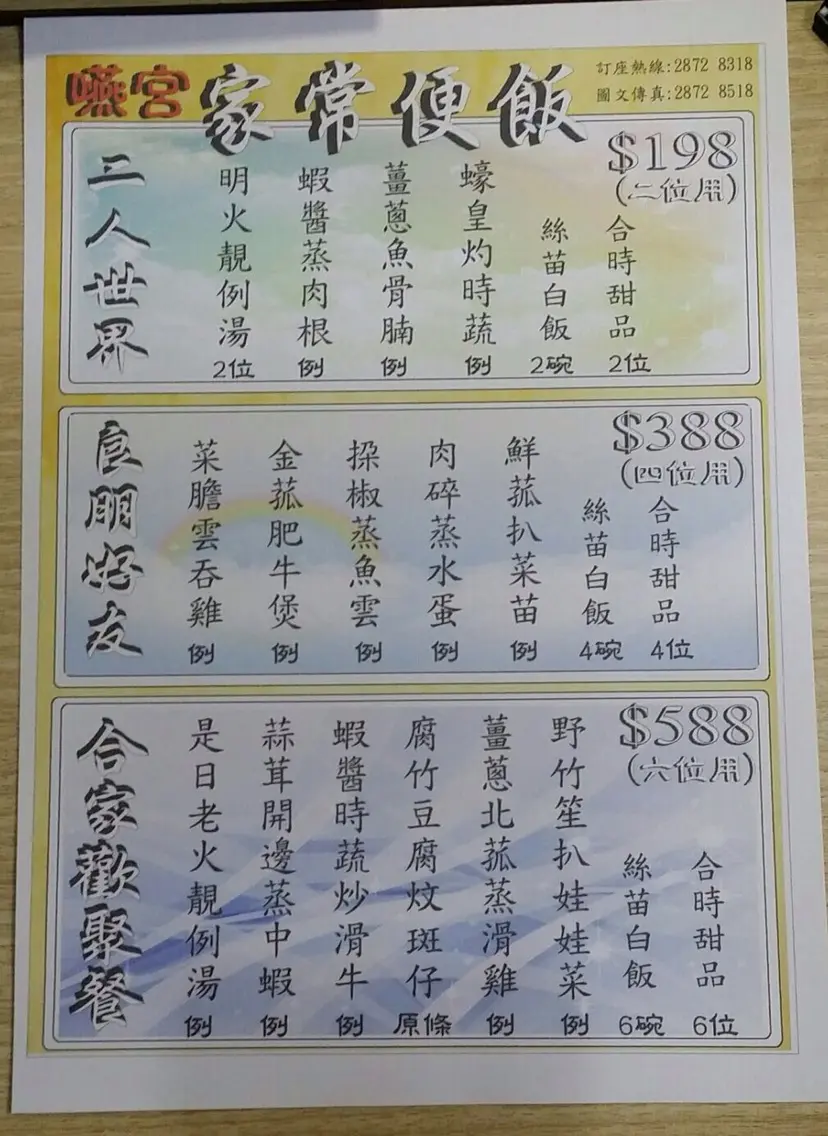 嚥宮
家常便飯
訂座熱線:2872 8318
圖文傳真:2872 8518
二人世界
$198
(二位用)
明火靚例湯 2位
蝦醬蒸肉根 例
薑蔥魚骨腩 例
蠔皇灼時蔬 例
絲苗白飯 2碗
合時甜品 2位
良朋好友
$388
(四位用)
菜膽雲吞雞 例
金菰肥牛煲 例
揼椒蒸魚雲 例
肉碎蒸水蛋 例
鮮菰扒菜苗 例
絲苗白飯 4碗
合時甜品 4位
合家歡聚餐
$588
(六位用)
是日老火靚例湯 例
蒜茸開邊蒸中蝦 例
蝦醬時蔬炒滑牛 例
腐竹豆腐炆斑仔 原條
薑蔥北菰蒸滑雞 例
野竹笙扒娃娃菜 例
絲苗白飯 6碗
合時甜品 6位